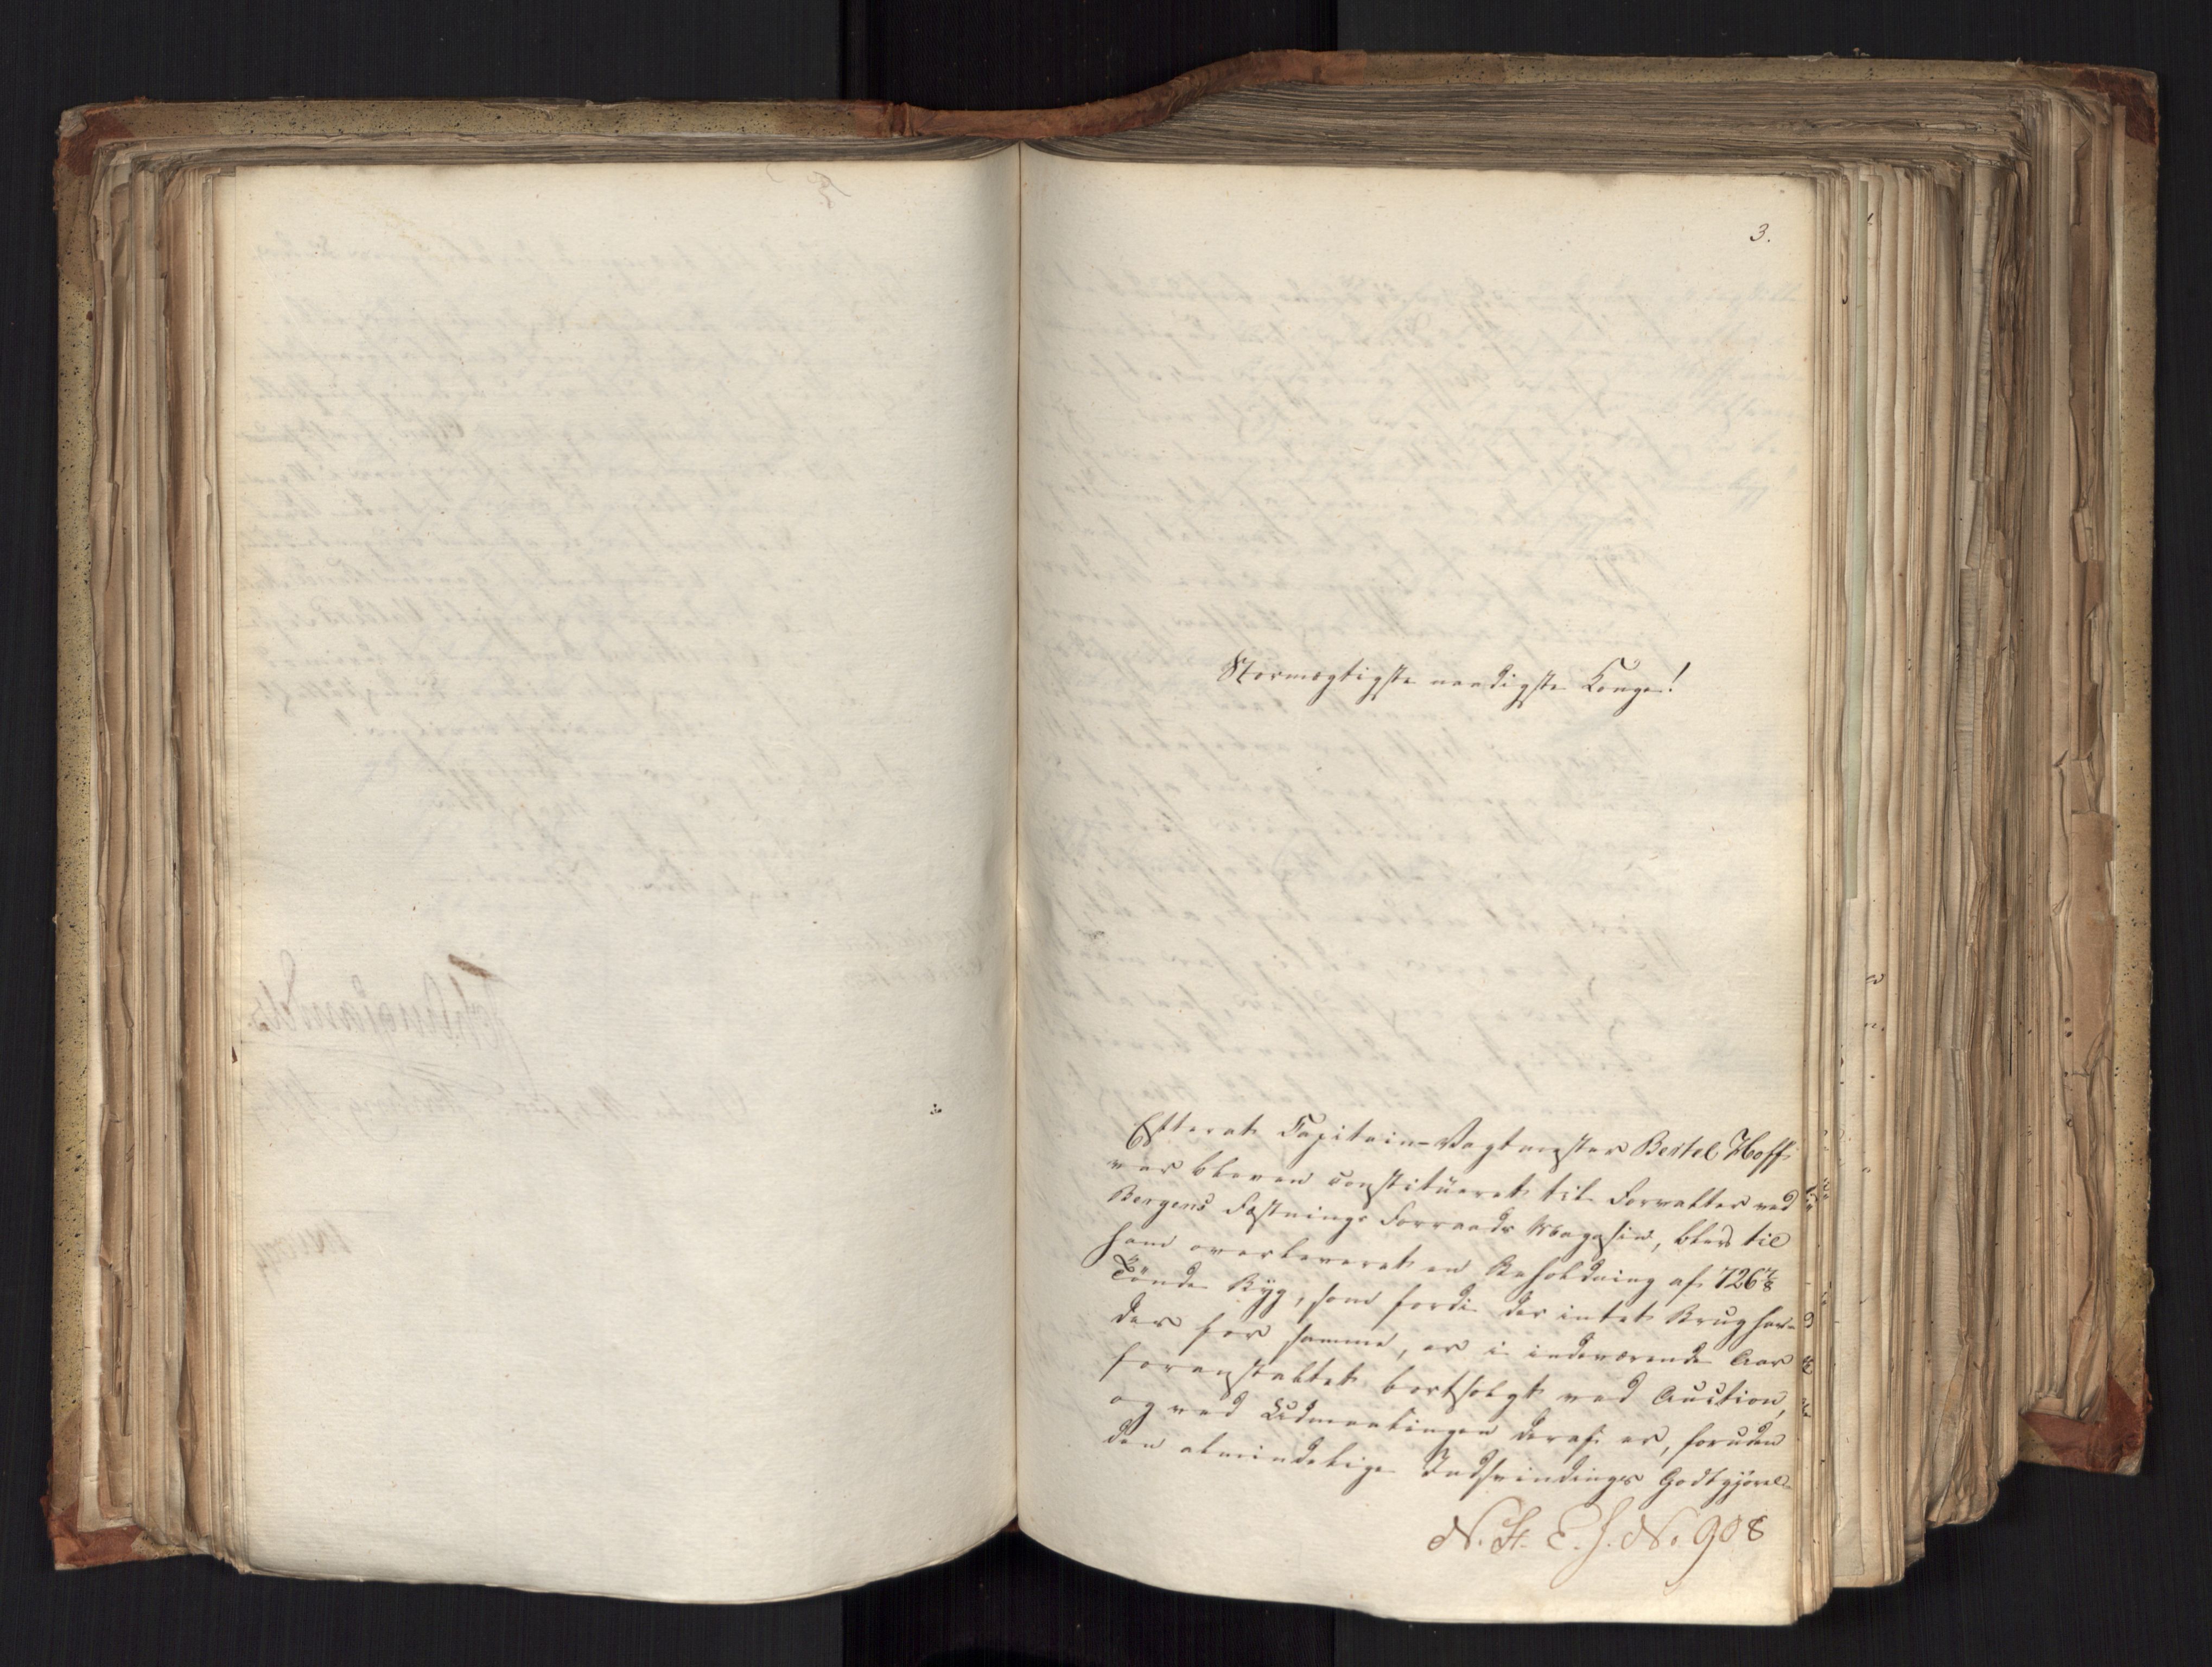 3.
Stormægtigste naadigste Konge!
Efterat Capitain-Vagtmester Bertel Hoff
var bleven constitueret til Forvalter ved
Bergens Fæstnings Forraads Magasin, blev til
ham overleveret en Beholdning af 726 7/8
Tönde Byg, som fordi der intet Brug hav-
des for samme, er i indeværende Aar
foranstaltet bortsolgt ved Auction,
og ved Udmaalingen deraf er, foruden
den almindelige Indsvindings Godtgjörel-
N. St. E. J. No 908